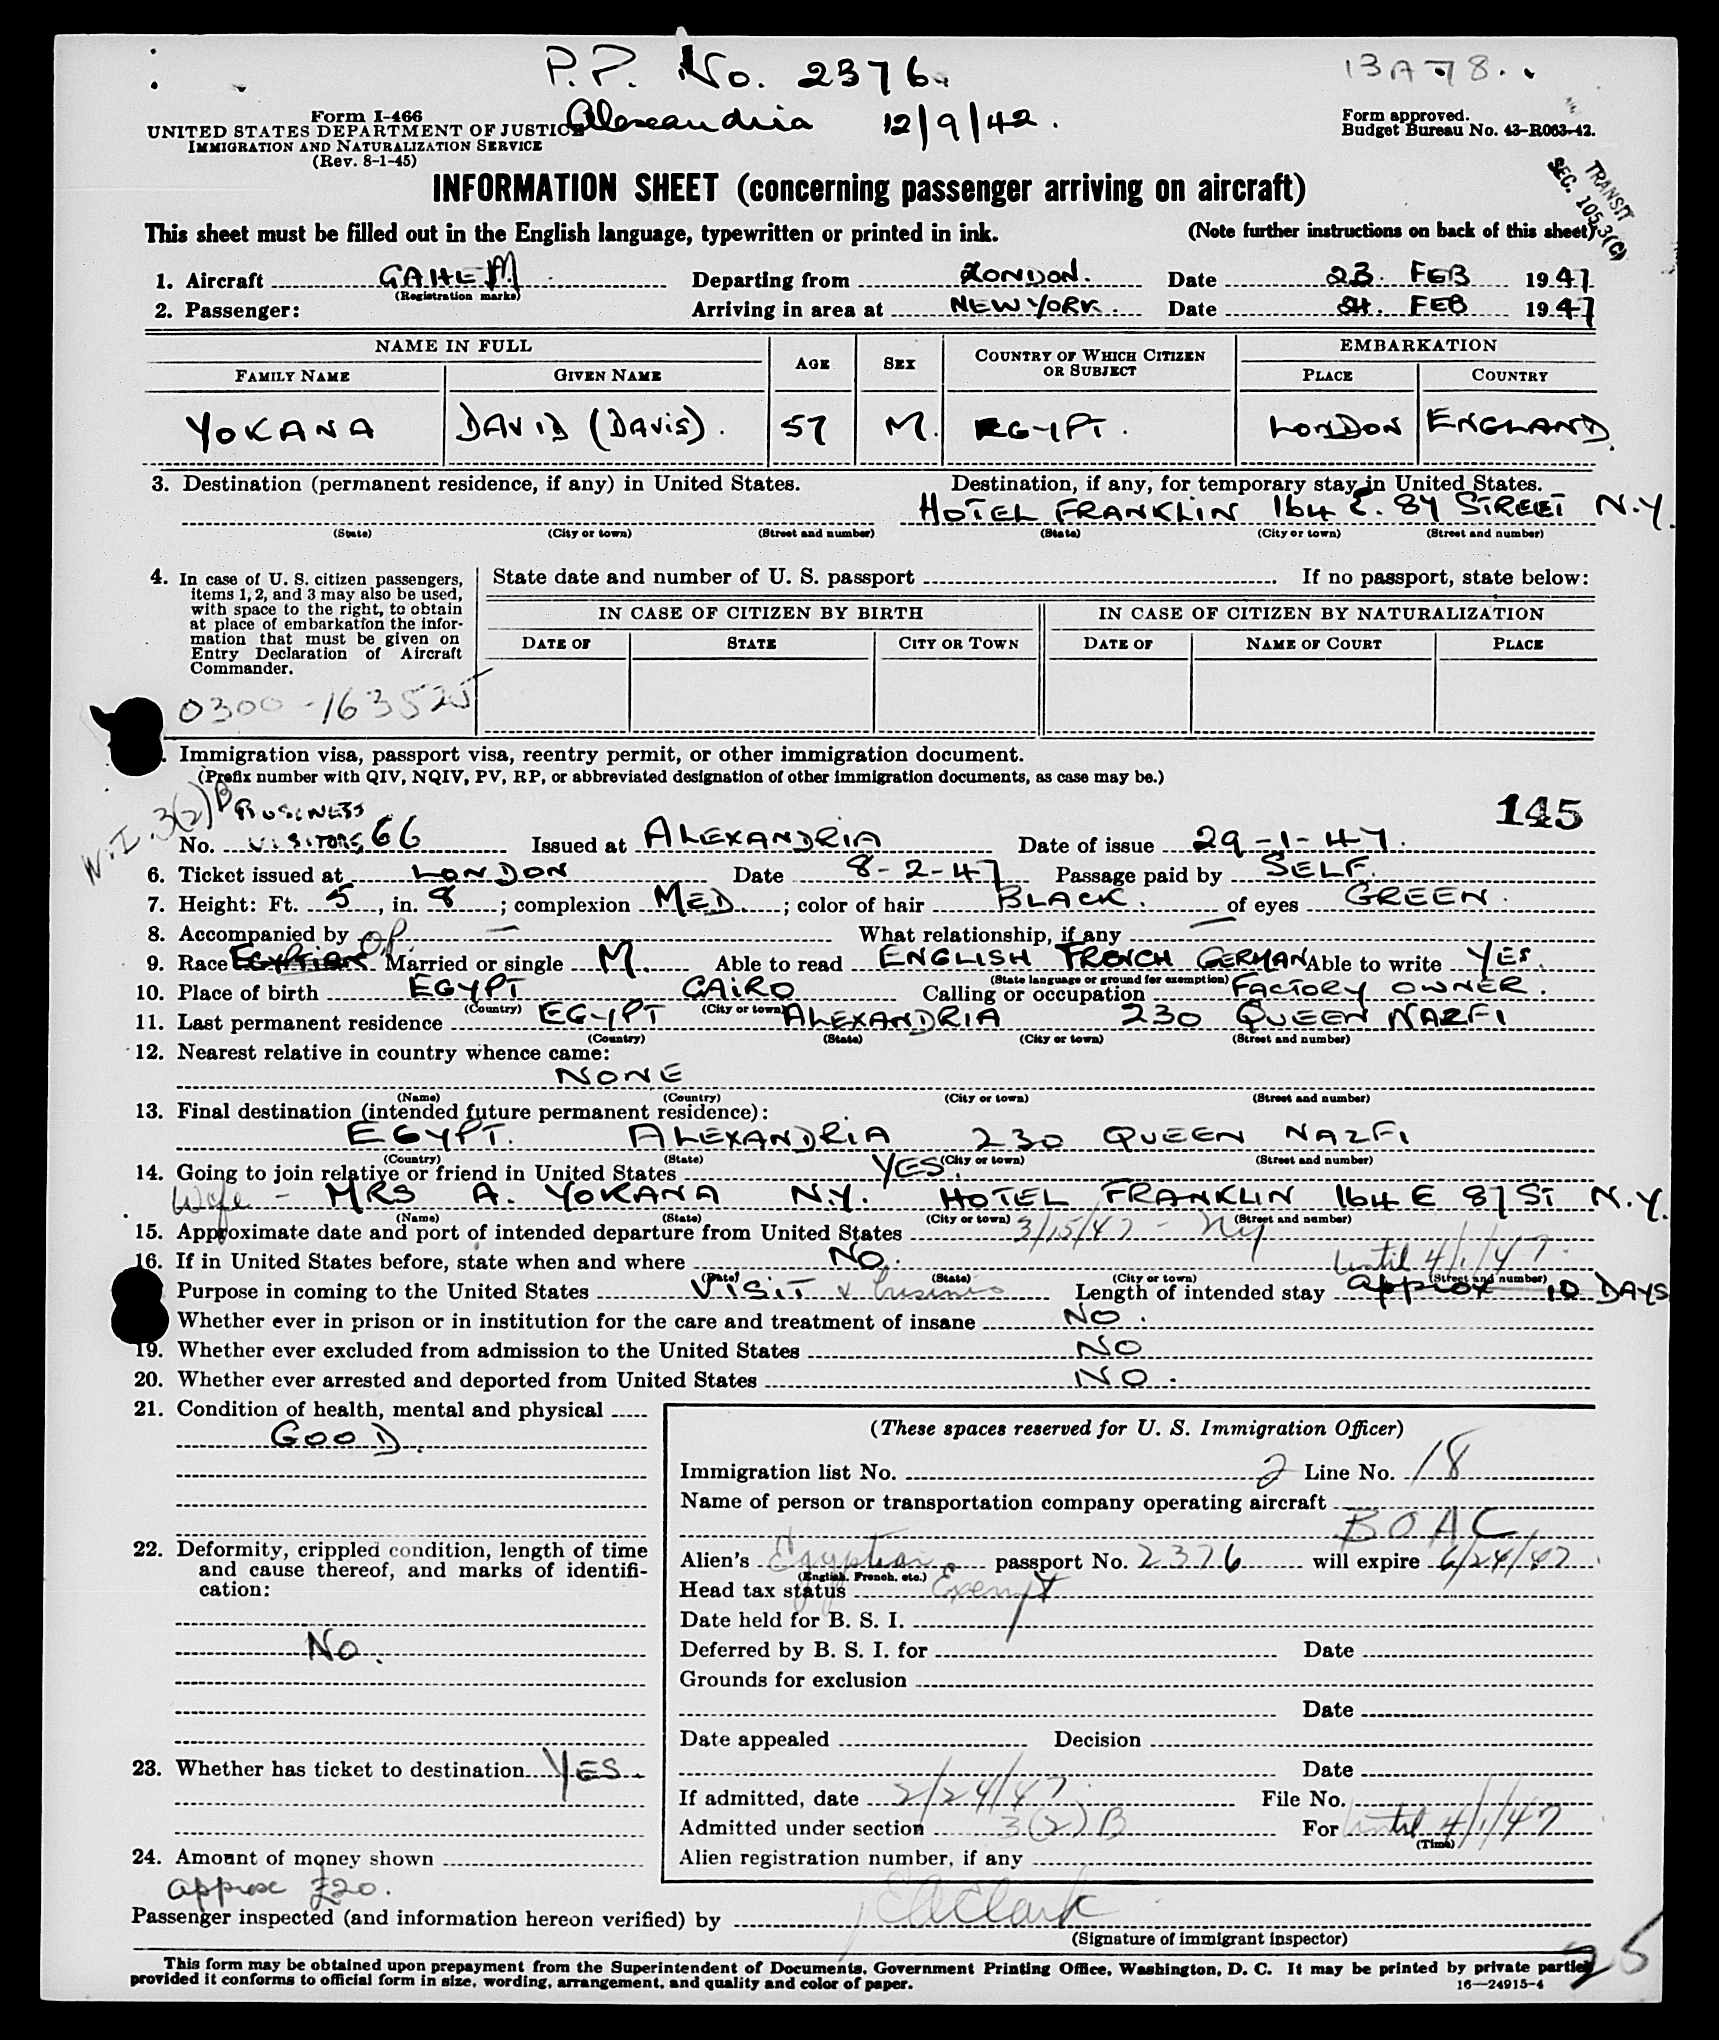 P.P. No. 2376.
13A78.
Form I-466
UNITED STATES DEPARTMENT OF JUSTICE
IMMIGRATION AND NATURALIZATION SERVICE
(Rev. 8-1-45)
Alexandria 12/9/42.
Form approved.
Budget Bureau No. 43-R063-42.
TRANSIT
SEC. 105.3(C)
INFORMATION SHEET (concerning passenger arriving on aircraft)
This sheet must be filled out in the English language, typewritten or printed in ink. (Note further instructions on back of this sheet)
1. Aircraft GAHEM Departing from LONDON. Date 23. FEB 1947
(Registration marks)
2. Passenger: Arriving in area at NEW YORK. Date 24. FEB 1947
NAME IN FULL AGE SEX COUNTRY OF WHICH CITIZEN OR SUBJECT EMBARKATION
FAMILY NAME GIVEN NAME PLACE COUNTRY
YOKANA DAVID (DAVIS). 57 M. EGYPT. LONDON ENGLAND.
3. Destination (permanent residence, if any) in United States. Destination, if any, for temporary stay in United States.
HOTEL FRANKLIN 164 E. 87 STREET N.Y.
(State) (City or town) (Street and number) (State) (City or town) (Street and number)
4. In case of U. S. citizen passengers, items 1, 2, and 3 may also be used, with space to the right, to obtain at place of embarkation the information that must be given on Entry Declaration of Aircraft Commander.
State date and number of U. S. passport If no passport, state below:
IN CASE OF CITIZEN BY BIRTH IN CASE OF CITIZEN BY NATURALIZATION
DATE OF STATE CITY OR TOWN DATE OF NAME OF COURT PLACE
0300-163525
Immigration visa, passport visa, reentry permit, or other immigration document.
(Prefix number with QIV, NQIV, PV, RP, or abbreviated designation of other immigration documents, as case may be.)
W.I. 3(2)B BUSINESS 145
No. VISITORS 66 Issued at ALEXANDRIA Date of issue 29-1-47.
6. Ticket issued at LONDON Date 8-2-47 Passage paid by SELF.
7. Height: Ft. 5, in. 8; complexion MED.; color of hair BLACK. of eyes GREEN.
8. Accompanied by — What relationship, if any —
9. Race EGYPTIAN Married or single M. Able to read ENGLISH FRENCH GERMAN Able to write YES.
(State language or ground for exemption)
10. Place of birth EGYPT CAIRO Calling or occupation FACTORY OWNER.
(Country) (City or town)
11. Last permanent residence EGYPT ALEXANDRIA 230 QUEEN NAZFI
(Country) (State) (City or town) (Street and number)
12. Nearest relative in country whence came:
NONE
(Name) (Country) (City or town) (Street and number)
13. Final destination (intended future permanent residence):
EGYPT. ALEXANDRIA 230 QUEEN NAZFI
(Country) (State) (City or town) (Street and number)
14. Going to join relative or friend in United States YES.
Wife - MRS A. YOKANA N.Y. HOTEL FRANKLIN 164 E 87 ST N.Y.
(Name) (State) (City or town) (Street and number)
15. Approximate date and port of intended departure from United States 3/15/47 - NY
16. If in United States before, state when and where NO. until 4/1/47.
(Date) (State) (City or town) (Street and number)
Purpose in coming to the United States VISIT & business Length of intended stay approx 10 DAYS
Whether ever in prison or in institution for the care and treatment of insane NO.
19. Whether ever excluded from admission to the United States NO
20. Whether ever arrested and deported from United States NO.
21. Condition of health, mental and physical
GOOD.
22. Deformity, crippled condition, length of time and cause thereof, and marks of identification:
NO.
23. Whether has ticket to destination YES
24. Amount of money shown
approx £20.
(These spaces reserved for U. S. Immigration Officer)
Immigration list No. 2 Line No. 18
Name of person or transportation company operating aircraft
BOAC
Alien's Egyptian passport No. 2376 will expire 6/24/47
(English, French, etc.)
Head tax status Exempt
Date held for B. S. I.
Deferred by B. S. I. for Date
Grounds for exclusion
Date
Date appealed Decision
Date
If admitted, date 2/24/47. File No.
Admitted under section 3(2)B For until 4/1/47
(Time)
Alien registration number, if any
Passenger inspected (and information hereon verified) by EA Clark
(Signature of immigrant inspector)
This form may be obtained upon prepayment from the Superintendent of Documents, Government Printing Office, Washington, D. C. It may be printed by private parties
provided it conforms to official form in size, wording, arrangement, and quality and color of paper. 16—24915-4
25